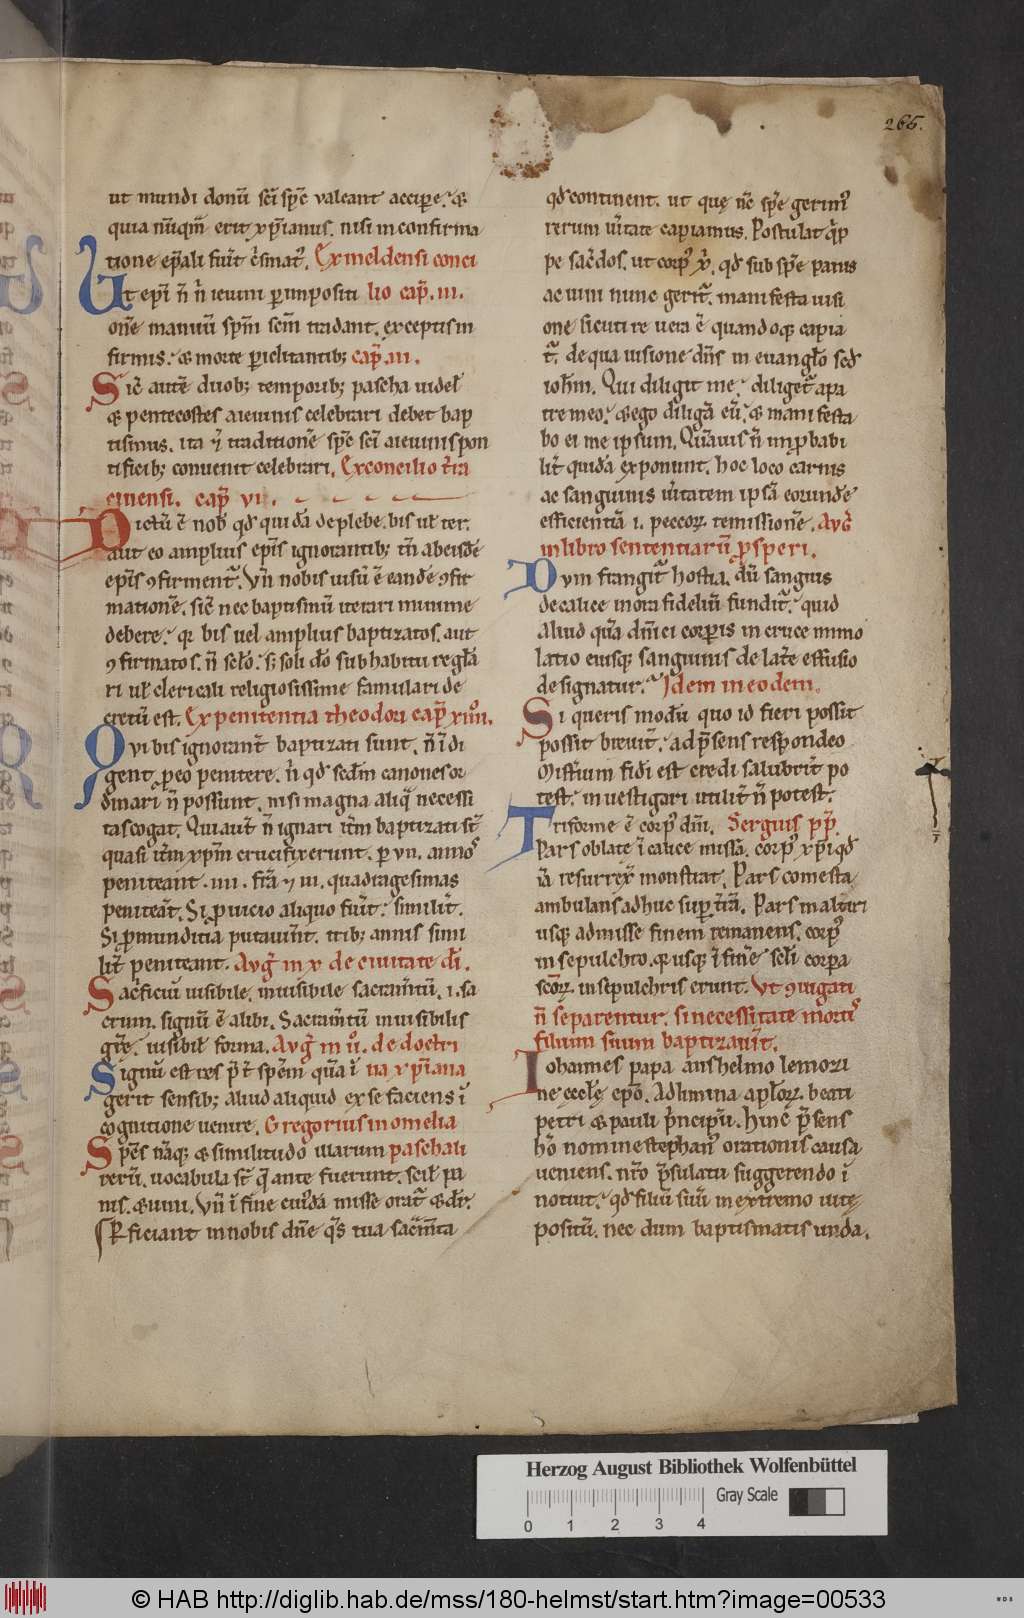 265.
ut mundi donū sc̄i sp̄c ualeant accipe. &
quia nūqm̄ erit xp̄ianus. nisi in confirma
tione ep̄ali fuīt c̄smat᷒. Ex meldensi conci
Ut ep̄i n̄ n̄ ieiuni p̱ inpositi lio cap̄. iii.
onē manuū sp̄m sc̄m tradant. exceptis in
firmis. & morte p̱iclitantib; cap̄. iii.
Sic̄ autē duob; temporib; pascha uidel̄
& pentecostes a ieiunis celebrari debet bap
tismus. ita & traditionē sp̄c sc̄i a ieiunis pon
tificib; conuenit celebrari. Ex concilio t̄ra
cinensi. cap̄ vi.
Dictū ē nob̄ qd̄ quidā de plebe. bis ul̄ ter.
aut eo amplius ep̄is ignorantib; tn̄ ab eisdē
ep̄is ꝯfirment᷑. Vn̄ nobis uisū ē eandē ꝯfir
mationē. sic̄ nec baptismū iterari minime
debere. qr̄ bis uel amplius baptizatos. aut
ꝯfirmatos. n̄ sclo. s; soli dō sub habitu regl̄a
ri ul̄ clericali religiosissime famulari de
cretū est. Ex penitentia theodori cap̄ xiiii.
Qui bis ignorant̄ baptizati sunt. n̄ īdi
gent p̱ eo penitere. n̄ qd̄ scd̄m canones or
dinari n̄ possunt. nisi magna aliq̄ necessi
tas cogat. Qui aut̄ n̄ ignari it̄m baptizati st̄
quasi it̄m xp̄m crucifixerunt. p̱ vii. annos
peniteant. iiii. fr̄a & vi. quadragesimas
peniteat̄. Si p̱ uicio aliquo fuīt. similit̄.
Si p̱ munditia putauīnt. trib; annis simi
lit̄ peniteant. Auḡ in x de ciuitate dī.
Sacrificiū uisibile. inuisibile sacram̄tū. i. sa
crum. signū ē alibi. Sacram̄tū inuisibilis
gr̄e. uisibil̄ forma. Auḡ in ii. de doctri
Signū est res p̄t sp̄em quā ī na xp̄iana
gerit sensib; aliud aliquid ex se faciens ī
cognitione uenire. Gregorius in omelia
Sp̄es nāq; & similitudo illarum paschali
rerū. uocabula st̄ q̄ ante fuerunt. scil̄ pa
nis. & uini. Vn̄ ī fine cui᷒dā missē orat᷑ & dr̄.
Perficiant in nobis dn̄e q̄s tua sac̄m̄ta
qd̄ continent. ut quę nc̄ sp̄e gerim᷒
rerum ūitate capiamus. Postulat q̄p
pe sac̄dos. ut corp᷒ x̄. qd̄ sub sp̄e panis
ac uini nunc gerit᷑. manifesta uisi
one sicuti re uera ē quandoq; capia
t᷑. de qua uisione dn̄s in euangl̄o scd̄
ioh̄m. Qui diligit me. diliget᷑ a pa
tre meo. & ego diligā eū. & manifesta
bo ei me ipsum. Quāuis n̄ inp̱babi
lit̄ quidā exponunt. hoc loco carnis
ac sanguinis ūitatem ipsā eorundē
efficientiā i. peccoꝝ remissionē. Auḡ
in libro sententiarū p̱speri.
Dum frangit᷑ hostia. dū sanguis
de calice in ora fideliū fundit᷑. quid
aliud quā dn̄ici corporis in cruce immo
latio eiusq; sanguinis de lat̄e effusio
designatur. Idem in eodem.
Si queris modū quo id fieri possit
possit breuit̄. ad p̄sens respondeo
Mist̄ium fidei est credi salubrit̄ po
test. inuestigari utilit̄ n̄ potest.
Triforme ē corp᷒ dn̄i. Sergius p̄p̄.
Pars oblate ī calice missā. corp᷒ xp̄i qd̄
iā resurrex̄ monstrat. Pars comesta
ambulans adhuc sup̱ t̄rā. Pars in altari
usq; ad missę finem remanens. corp᷒
in sepulchro. qr̄ usq; ī finē scl̄i corpora
sc̄oꝝ in sepulchris erunt. Ut ꝯiugati
n̄ separentur. si necessitate mortis
filium suum baptizauīt.
Iohannes papa anshelmo lemori
ne eccl̄ę ep̄o. Ad limina apl̄oꝝ. beati
petri & pauli p̄ncipū. Hinc p̄sens
hō nomine stephan᷒ orationis causa
ueniens. nr̄o p̄sulatu suggerendo ī
notuit. qd̄ filiū suū in extremo uitę
positū. nec dum baptismatis unda.
Herzog August Bibliothek Wolfenbüttel
Gray Scale
0 1 2 3 4
© HAB http://diglib.hab.de/mss/180-helmst/start.htm?image=00533